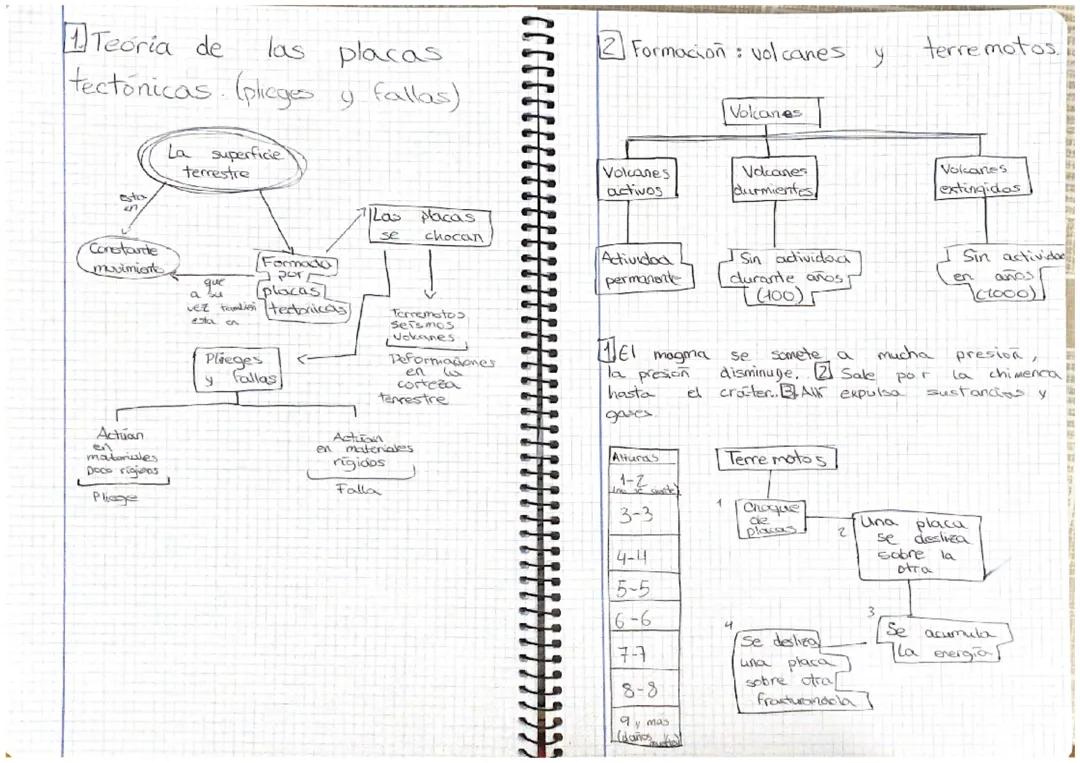 1 Teoría de las placas
tectónicas. (plieges y fallas)
La superficie
terrestre
esta
en
Constante
movimiento
Formado
por
placas
tectonicas
que
a su
vez tambien
esta en
Las placas
se chocan
Terremotos
seísmos
volcanes
Deformaciones
en la
corteza
terrestre
Plieges
y fallas
Actúan
en
materiales
poco rígidos
Pliege
Actúan
en materiales
rígidos
Falla
2 Formacion : volcanes y terremotos.
Volcanes
Volcanes
activos
Volcanes
durmientes
Volcanes
extingidos
Actividad
permanente
Sin actividad
durante años
(100)
Sin actividad
en años
(1000)
1 El magma se somete a mucha presión,
la presión disminuge. 2 Sale por la chimenea
hasta el cráter. 3 Allí expulsa sustancias y
gases.
Alturas
1-2
(no se siente)
3-3
4-4
5-5
6-6
7-7
8-8
9 y mas
(daños muchos)
Terremotos
1
Choque
de
placas
2
Una placa
se desliza
sobre la
otra
3
Se acumula
la energía
4
Se desliza
una placa
sobre otra
fracturandola